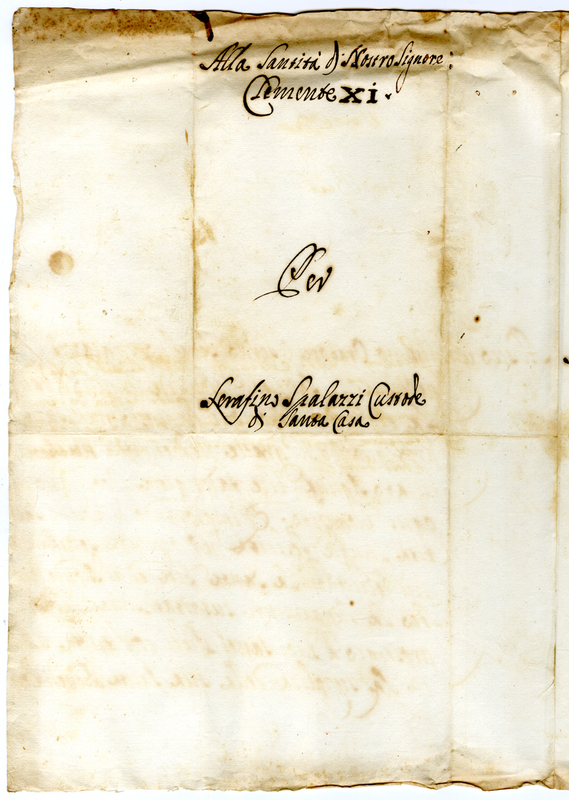 Alla Santità di Nostro Signore:
Clemente XI.
Per
Serafino Scalazzi Custode
di Santa Casa